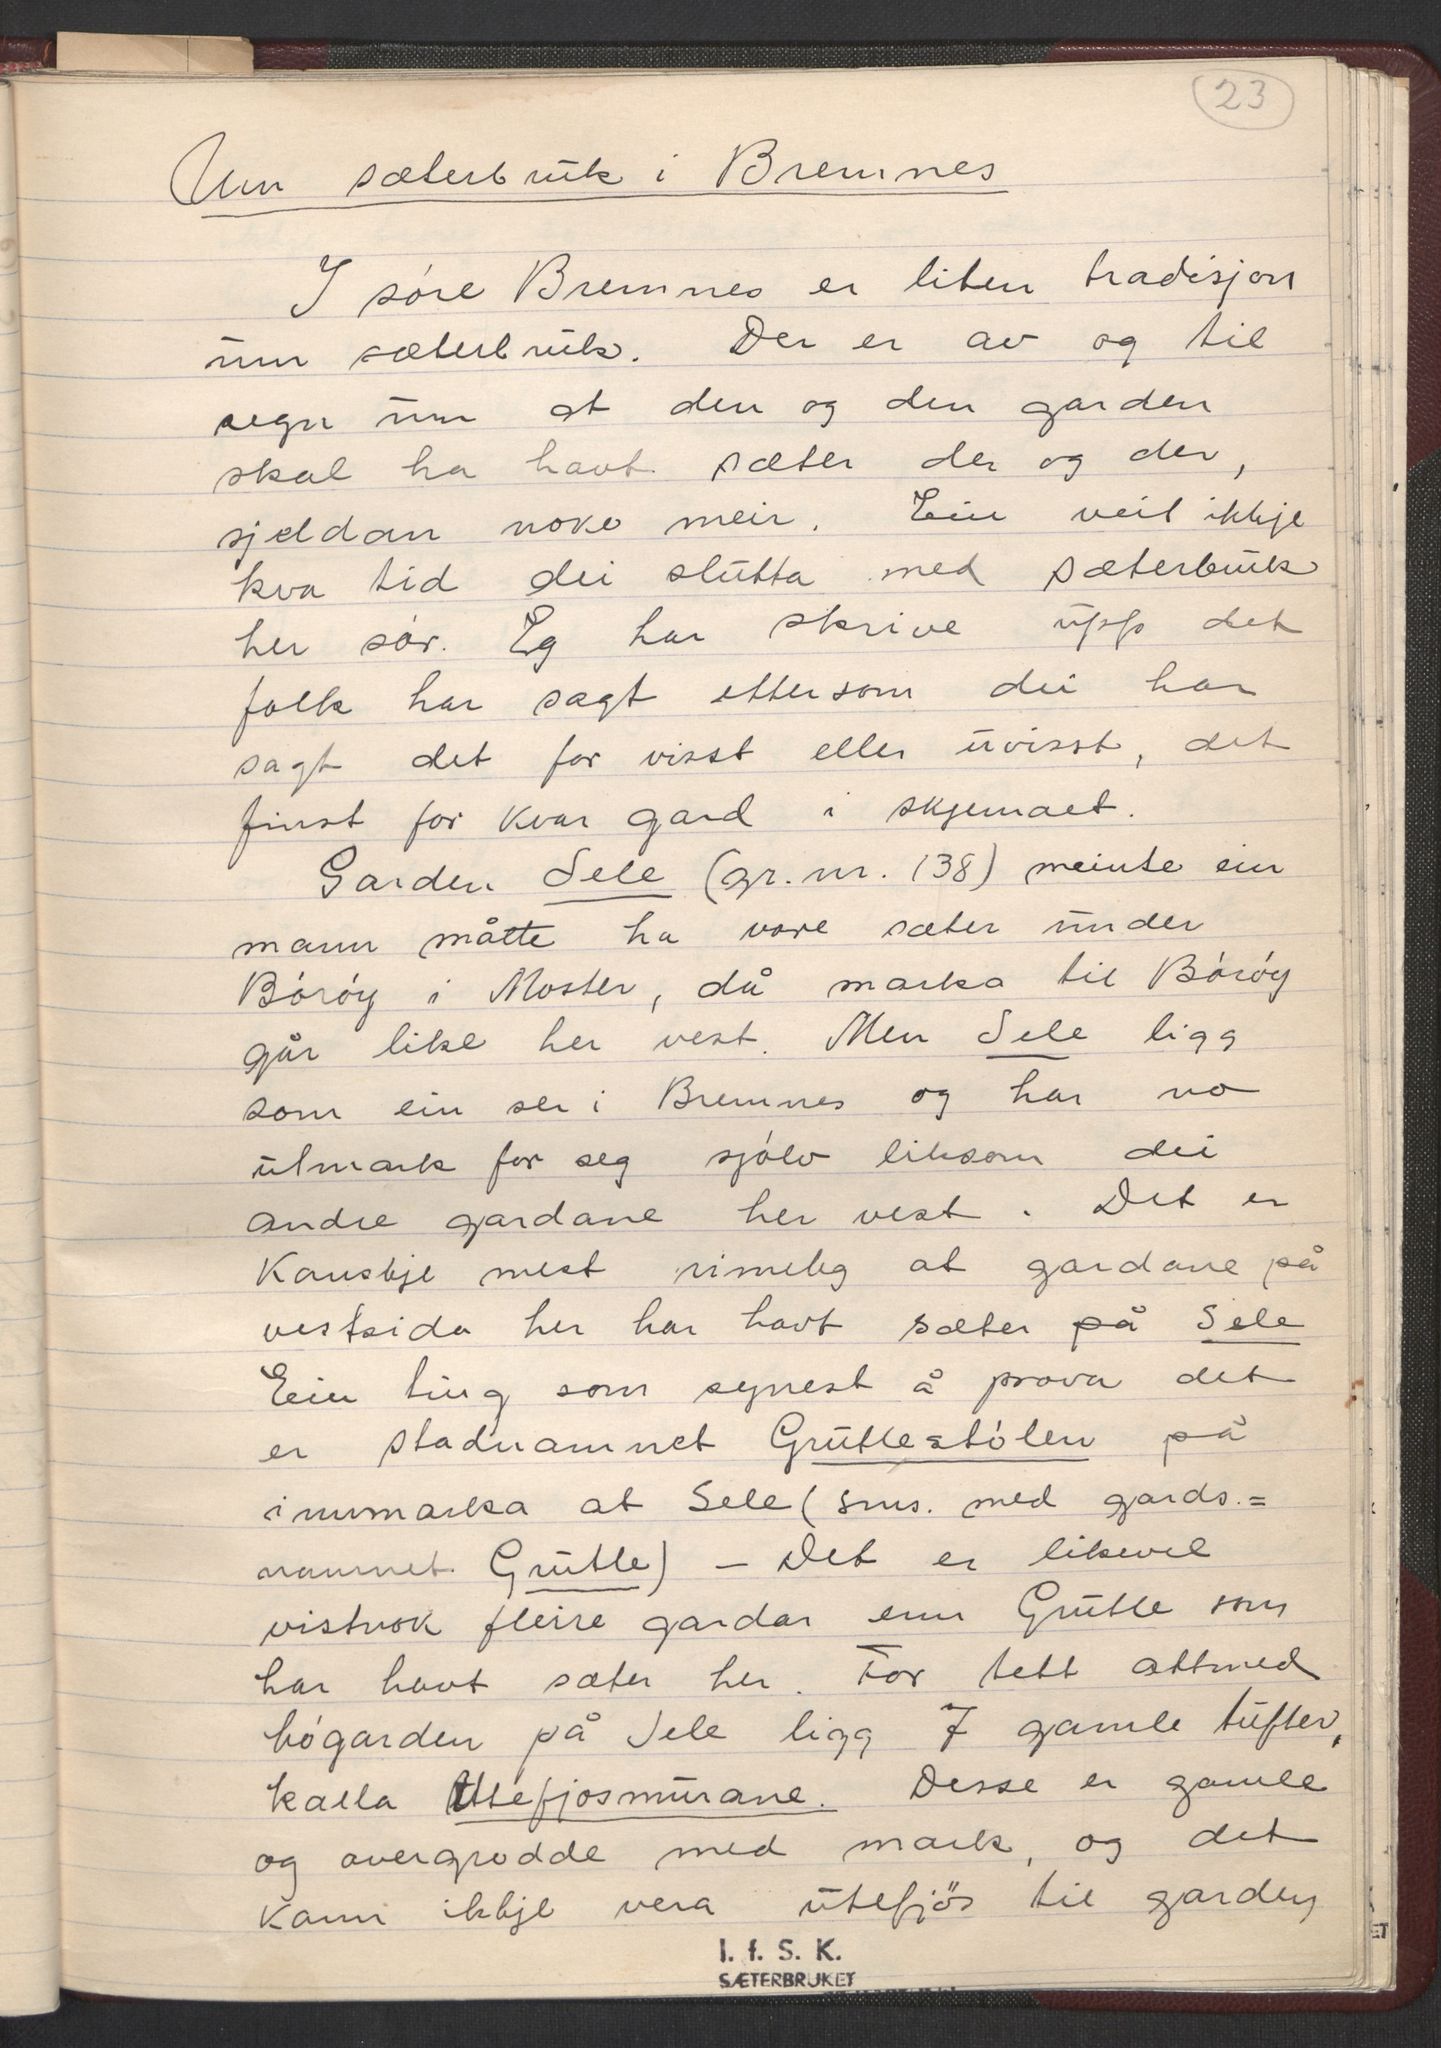 23
Um sæterbruk i Bremnes
I søre Bremnes er liten tradisjon
um sæterbruk. Der er av og til
segn um at den og den garden
skal ha havt sæter der og der,
sjeldan noko meir. Ein veit ikkje
kva tid dei slutta med sæterbruk
her sør. Eg har skrive upp det
folk har sagt ettersom dei har
sagt det for visst eller uvisst, det
finst for kvar gard i skjemaet.
Garden Sele (gr. nr. 138) meinte ein
mann måtte ha vore sæter under
Børøy i Moster, då marka til Børøy
går like her vest. Men Sele ligg
som ein ser i Bremnes og har no
utmark for seg sjølv liksom dei
andre gardane her vest. Det er
kanskje mest rimeleg at gardane på
vestsida her har havt sæter på Sele
Ein ting som synest å prova det
er stadnamnet Gruttestølen på
innmarka at Sele (sms. med gards-
namnet Grutle) - Det er likevel
vistnok fleire gardar enn Grutle som
har havt sæter her. For tett attmed
bøgarden på Sele ligg 7 gamle tufter,
kalla Utefjosmurane. Desse er gamle
og overgrodde med mark, og det
kann ikkje vera utefjös til garden
I. f. S. K.
SÆTERBRUKET